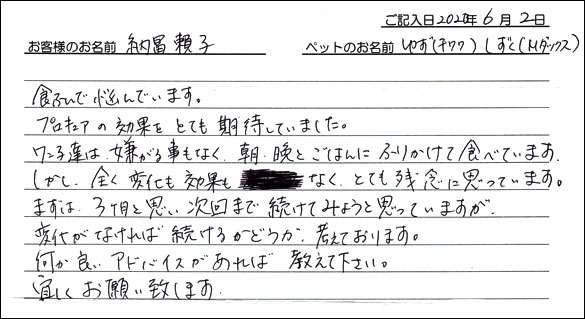 ご記入日2020年6月2日
お客様のお名前 納冨 頼子 ペットのお名前 ゆず(チワワ) しずく(Mダックス)
食ふんで悩んでいます。
プロキュアの効果をとても期待していました。
ワン子達は嫌がる事もなく、朝・晩とごはんにふりかけて食べています。
しかし、全く変化も効果もなく、とても残念に思っています。
まずは、3ヶ月と思い次回まで続けてみようと思っていますが、
変化がなければ続けるかどうか、考えております。
何か良いアドバイスがあれば教えて下さい。
宜しくお願い致します。